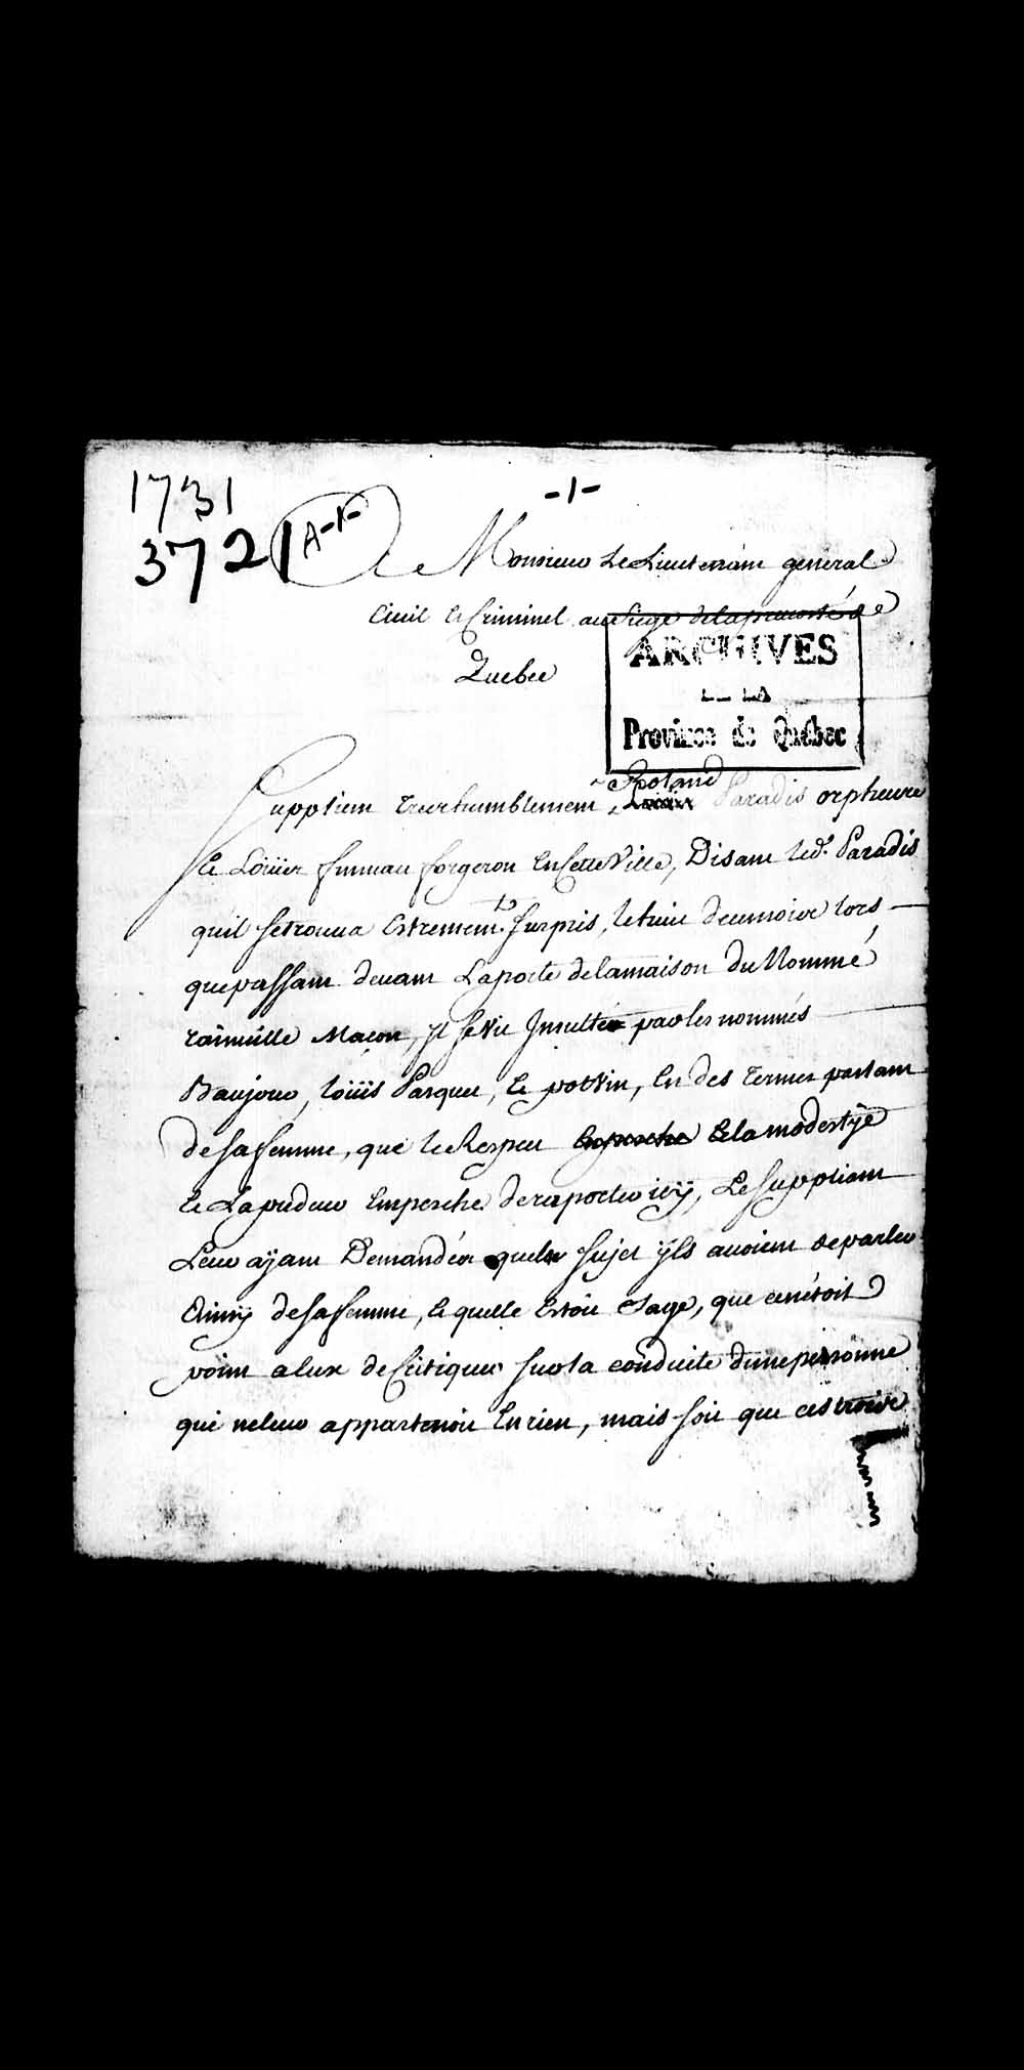 1731
-1-
3721
A-1-
A Monsieur Le Lieutenant general
Civil et Criminel au Siege de la prevosté de
Quebec
ARCHIVES
DE LA
Province de Québec
Roland
Supplient tres humblement, Paradis orpheuvre
et Loüis forgeron En Cette Ville, Disant led.t Paradis
qu'il se trouva Extremem.t Surpris, le huit de ce mois lors
que passant devant La porte de la maison du Nommé
rainville Maçon, Il se Vit Insulter par les nommés
Baujour, loüis Parquet, et potvin, En des Termes parlant
de sa femme, que le Respect Empesche et la modestÿe
et La pudeur Empesche de raporter icÿ, Le Suppliant
Leur aÿant Demandéz quelz Sujet ÿls avoient de parler
Ainsÿ de sa femme, laquelle Estoit Sage, que ce nétoit
point a Eux de Critiquer Sur la conduite d'une personne
qui ne leur appartenoit En rien, mais soit que ces trois